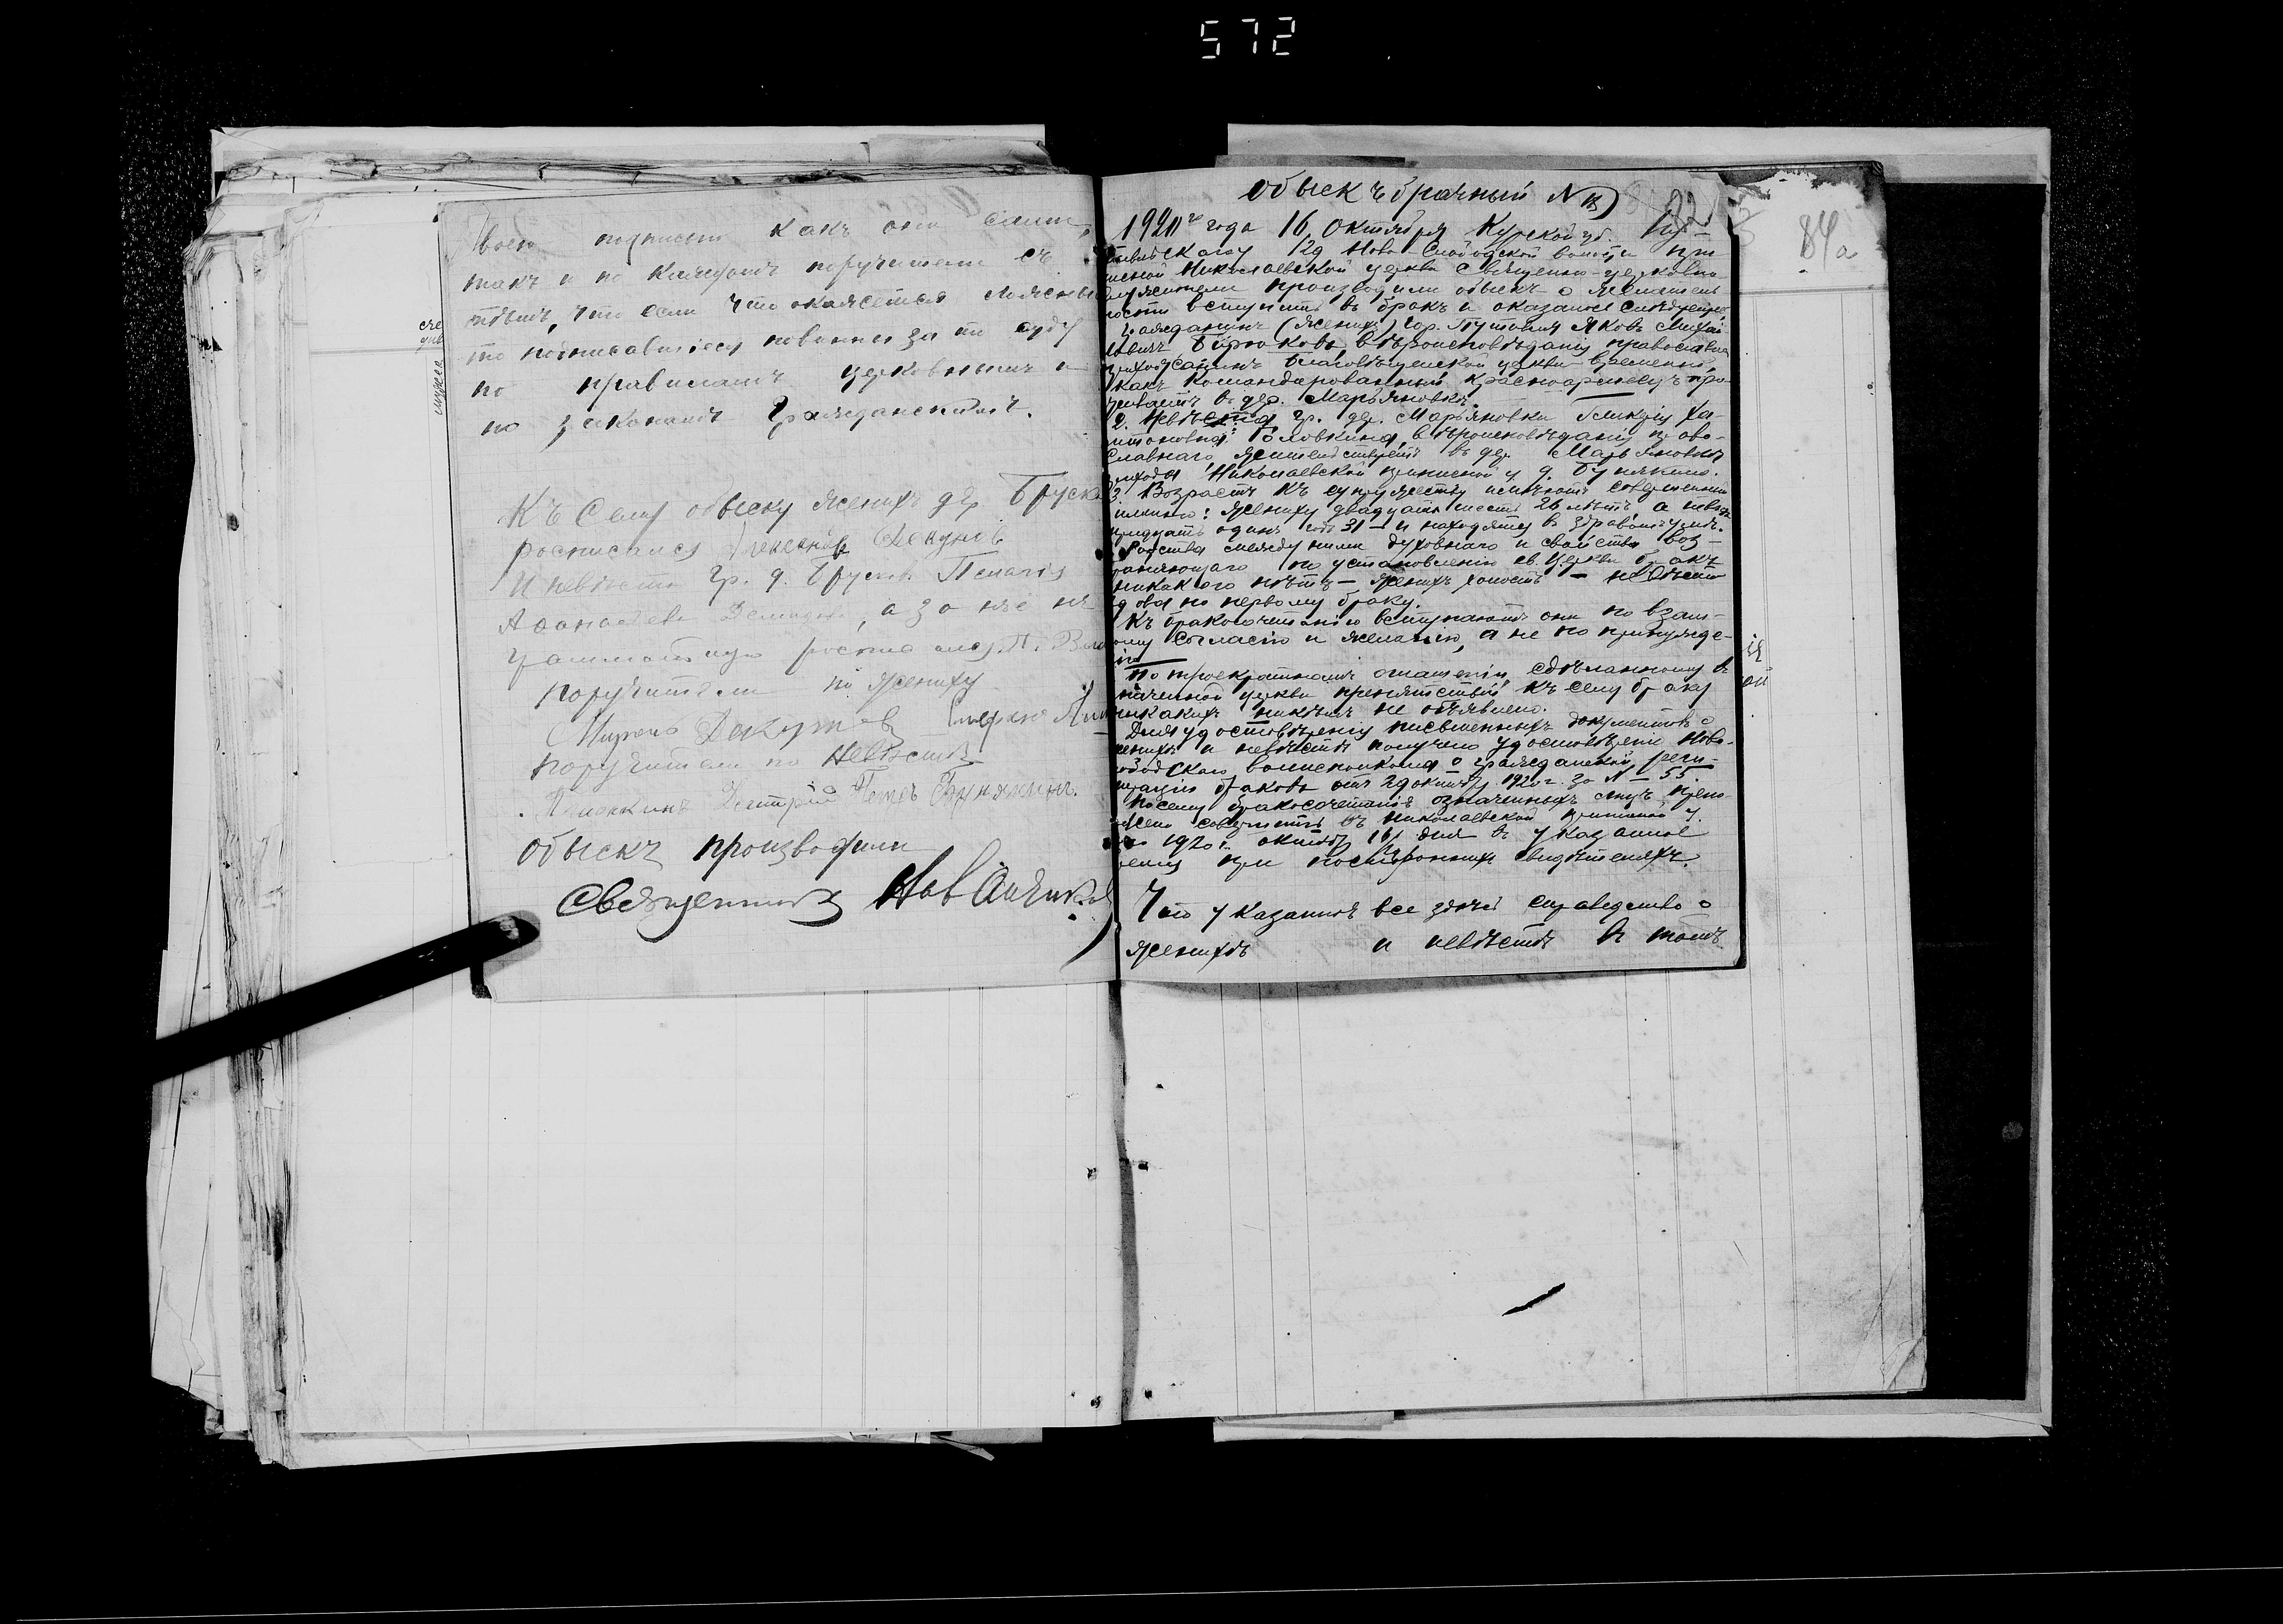 572
84а
своею подписью какъ они сами,
такъ и по каждомъ поручители съ
тѣмъ, что если что окажется ложны
то подписавшіеся повинны за то суду
по правиламъ церковнымъ и
по законамъ гражданскимъ.
Къ сему обыску женихъ дер Бруск
росписался Декунов
и невѣста гр. д. Бруск. Пелагія
а за неё не
грамотную росписалс. П.
поручители по жениху
Миронъ Декунов
поручители по невѣстѣ
Дмитрій Петръ Бунякинъ.
обыскъ производили
Священникъ
обыскъ брачный N
1920го года 16, октября Курской губ.
12д Ново Слободской волости при
писной Николаевской церкви священно-церковно
служители производили обыскъ о желатель
ности вступить въ бракъ и оказалось слѣдующее:
1. гражданинъ (женихъ) гор. Путивля Яковъ Михай
ловичъ Бирюковъ, вѣроисповѣданія православна
прихожанинъ Благовѣщенской церкви временный,
какъ командированный красноармеецъ про-
живаетъ въ дер. Марьяновка.
2. Невѣста гр. дер. Марьяновки Гликерія Ха-
ритоновна Головкина, вѣроисповѣданія право-
славнаго, жительствуетъ въ дер. Марьяновкѣ
прихода Николаевской приписной ц. д. Бунякино.
3. Возрастъ къ супружеству имѣютъ совершенный
именно: жениху двадцать шесть 26 лѣтъ, а невѣстѣ
тридцать одинъ годъ 31 – и находятся въ здравомъ умѣ.
Родства между ними духовнаго и свойства, воз-
браняющаго по установленію св. церкви бракъ
никакого нѣтъ – женихъ холостъ – невѣста
вдова по первому браку.
Къ бракосочетанію вступаютъ они по взаим-
ному согласію и желанію, а не по принужде-
нію
По троекратномъ оглашеніи, сдѣланному въ
означенной церкви препятствій къ сему браку
никакихъ никѣмъ не объявлено.
Для удостовѣренія письменныхъ документовъ о
женихѣ и невѣстѣ получено удостовѣреніе Ново-
слободскаго волисполкома о гражданской реги-
страціи браковъ отъ 29 октября 1920 г. за N – 55.
Посему бракосочетаніе означенныхъ лицъ предпо-
ложено совершить въ Николаевской приписной ц.
1920 г. октября 16 дня въ указанное
время при постороннихъ свидѣтеляхъ.
Что указанное все здѣсь справедливо о
женихѣ и невѣстѣ въ томъ